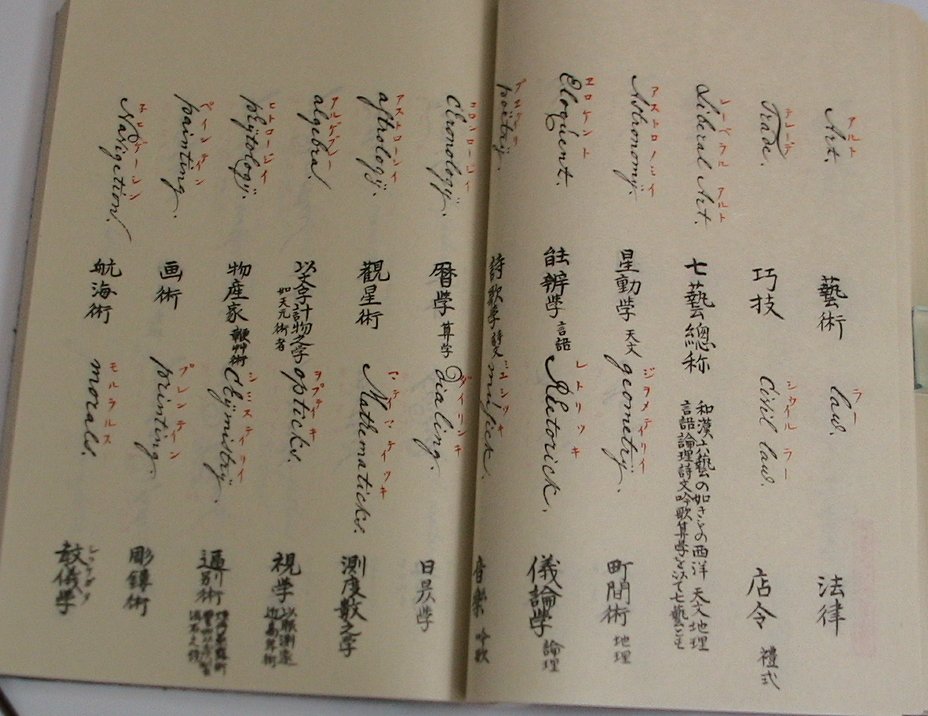 アルト
Art.
藝術
ラー
law.
法律
テレーデ
Trade.
巧技
シウイル ラー
Civil law.
店令 禮式
リーベラル アルト
Liberal Art.
七藝總称
和漢六藝の如きもの西洋 天文地理
言語論理詩文吟歌算学を以て七藝とす
アストロノミイ
Astronomy.
星動学 天文
ジヲメテイリイ
geometry.
町間術 地理
エロケント
Eloquent.
能辨学 言語
レトリツキ
Rhetorick.
儀論学 論理
poëtrij.
詩歌学 詩文
musick.
音楽 吟歌
Chronologij.
暦学 算学
dialing.
日晷学
アストロロージイ
astrologij.
觀星術
マテマテイツキ
Mathematicks.
測度數之学
アルゲブラ
algebra.
以文字計物之学
如天元術者
ヲプテイキ
opticks.
視学
ヒトロージイ
phijtologij.
物産家
シミステイリイ
Chijmistrij.
ペインテイン
painting.
画術
プレンテイン
printing.
彫鏤術
Navigation.
航海術
モルラルス
morals.
教儀学